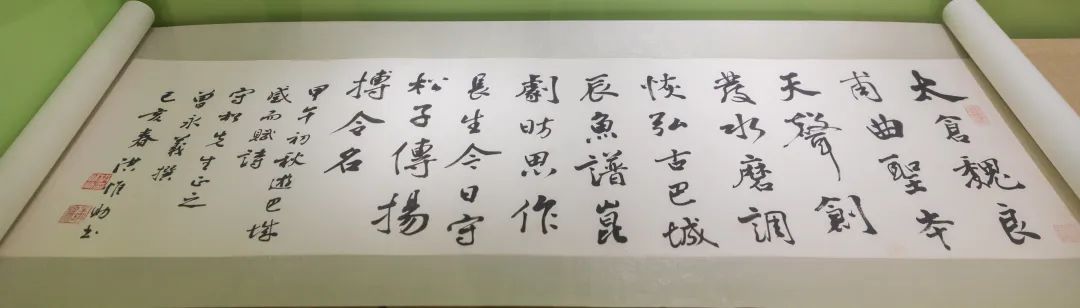 太倉魏良
甫曲聖本
天聲創
發水磨調
恢弘古巴城
辰魚譜崑
劇昉思作
長生今日守
松子傳揚
搏令名
甲午初秋遊巴城
感而賦詩
守松先生正之
曾永義撰
己亥春洪惟助書